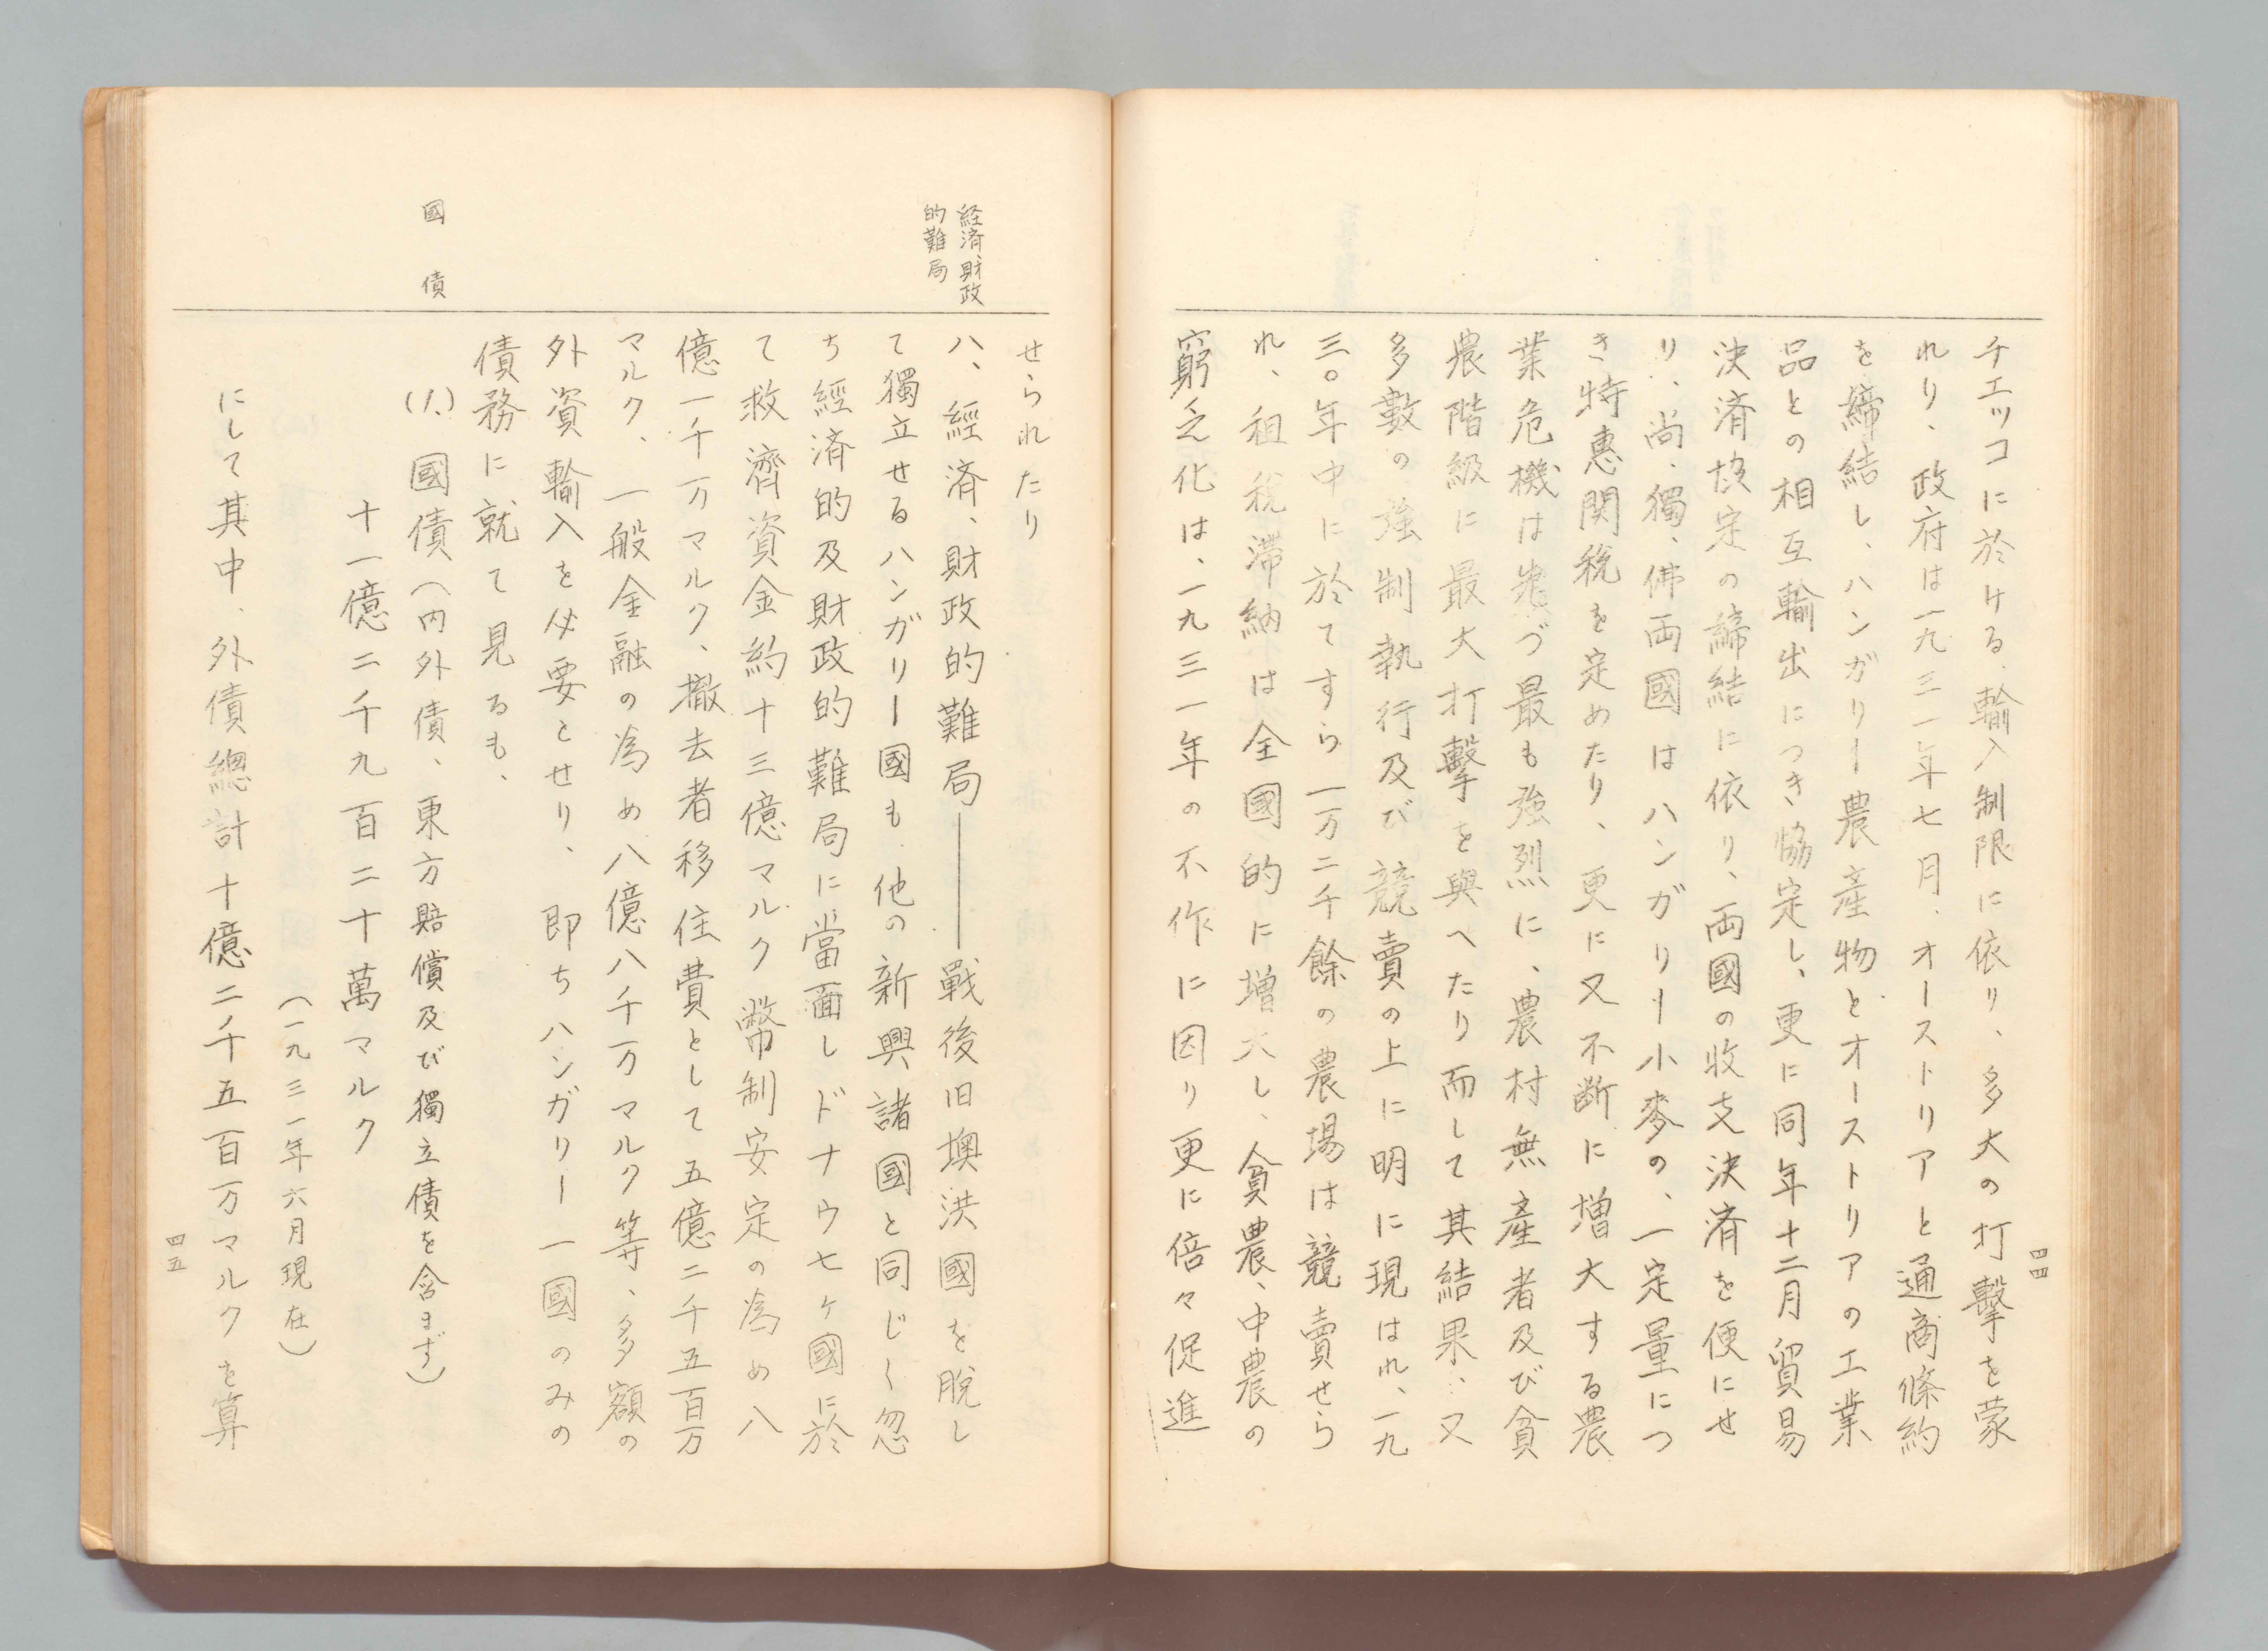 四四
チエッコに於ける輸入制限に依り、多大の打撃を蒙
れり、政府は一九三一年七月、オーストリアと通商條約
を締結し、ハンガリー農産物とオーストリアの工業
品との相互輸出につき協定し、更に同年十二月貿易
決済協定の締結に依り、両國の收支決済を便にせ
り、尚、獨、佛両國はハンガリー小麥の、一定量につ
き特惠関税を定めたり、更に又不断に増大する農
業危機は先づ最も強烈に、農村無産者及び貧
農階級に最大打撃を與へたり而して其結果、又
多數の強制執行及び競賣の上に明に現はれ、一九
三〇年中に於てすら一万二千餘の農場は競賣せら
れ、租税滞納は全國的に増大し、貧農、中農の
窮乏化は、一九三一年の不作に因り更に倍々促進
せられたり
経済、財政
的難局
八、經済、財政的難局――戰後旧墺洪國を脱し
て獨立せるハンガリー國も、他の新興諸國と同じく忽
ち經済的及財政的難局に當面しドナウ七ヶ國に於
て救濟資金約十三億マルク幣制安定の為め八
億一千万マルク、撤去者移住費として五億二千五百万
マルク、一般金融の為め八億八千万マルク等、多額の
外資輸入を必要とせり、即ちハンガリー一國のみの
債務に就て見るも、
國債
(1、)國債(内外債、東方賠償及び獨立債を含まず)
十一億二千九百二十萬マルク
(一九三一年六月現在)
にして其中、外債總計十億二千五百万マルクを算
四五